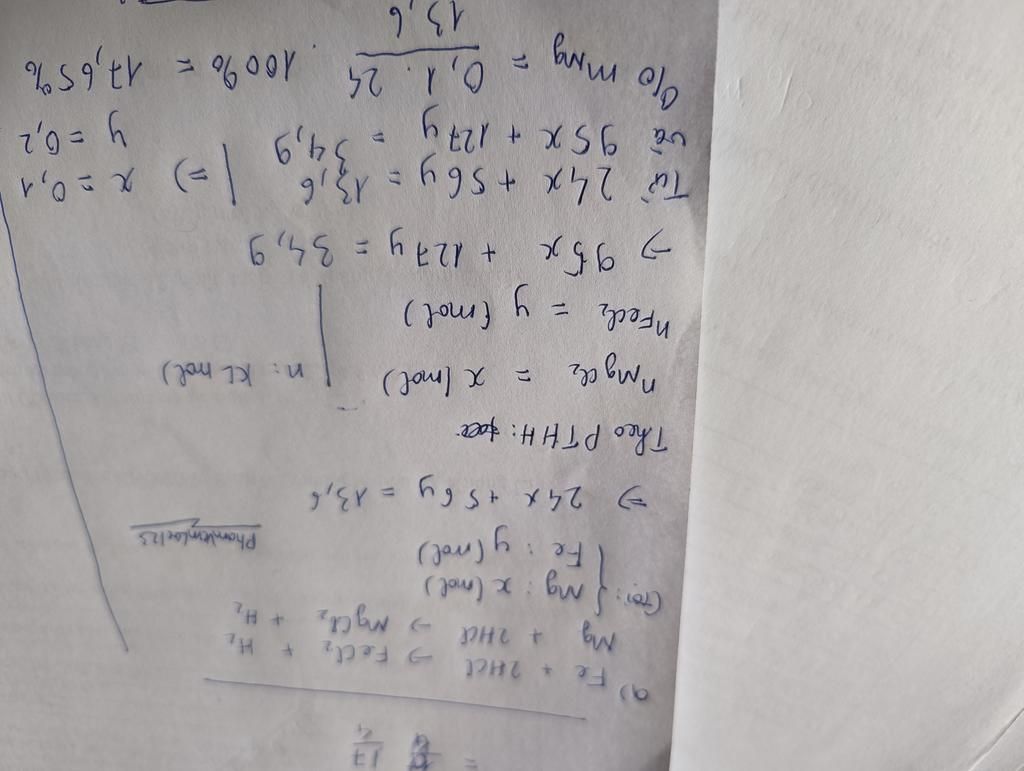 = 17/4
a) Fe + 2HCl → FeCl₂ + H₂
Mg + 2HCl → MgCl₂ + H₂
Gọi: { Mg : x (mol)
Fe : y (mol)
Phamkimloc123
⇒ 24x + 56y = 13,6
Theo PTHH:
nMgCl₂ = x (mol) | n: KL mol)
nFeCl₂ = y (mol)
→ 95x + 127y = 34,9
Từ 24x + 56y = 13,6 | ⇒) x = 0,1
và 95x + 127y = 34,9 y = 0,2
% mMg = 0,1 . 24 / 13,6 . 100% = 17,65%